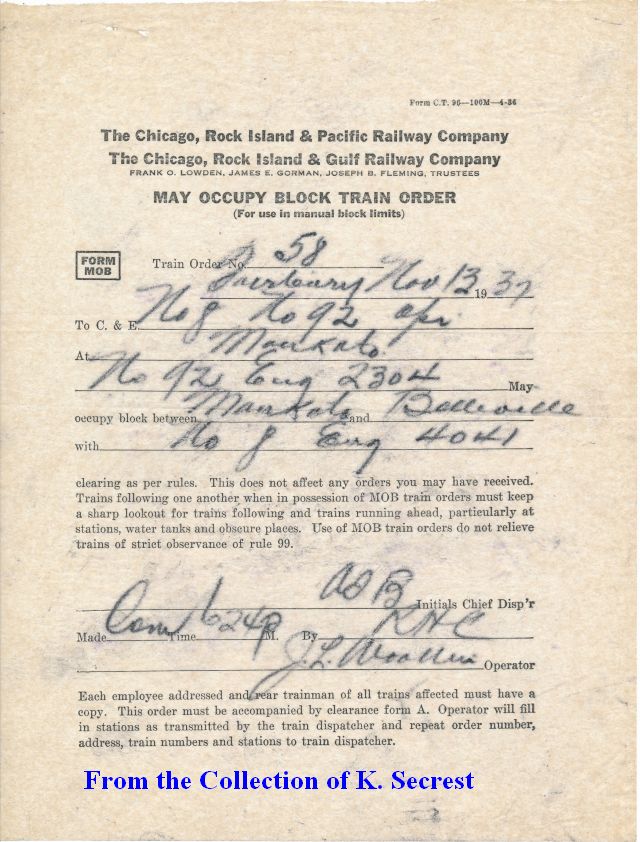 Form C.T. 96—100M—4-36
The Chicago, Rock Island & Pacific Railway Company
The Chicago, Rock Island & Gulf Railway Company
FRANK O. LOWDEN, JAMES E. GORMAN, JOSEPH B. FLEMING, TRUSTEES
MAY OCCUPY BLOCK TRAIN ORDER
(For use in manual block limits)
FORM
MOB
Train Order No. 58
Fairbury Nov 13 1937
To C. & E. No 8 No 92 opr
At Mankato
No 92 Eng 2304 May
occupy block between Mankato and Belleville
with No 8 Eng 4041
clearing as per rules. This does not affect any orders you may have received.
Trains following one another when in possession of MOB train orders must keep
a sharp lookout for trains following and trains running ahead, particularly at
stations, water tanks and obscure places. Use of MOB train orders do not relieve
trains of strict observance of rule 99.
Initials Chief Disp'r
Made Com Time 624P M. By KHC
J.L. Operator
Each employee addressed and rear trainman of all trains affected must have a
copy. This order must be accompanied by clearance form A. Operator will fill
in stations as transmitted by the train dispatcher and repeat order number,
address, train numbers and stations to train dispatcher.
From the Collection of K. Secrest